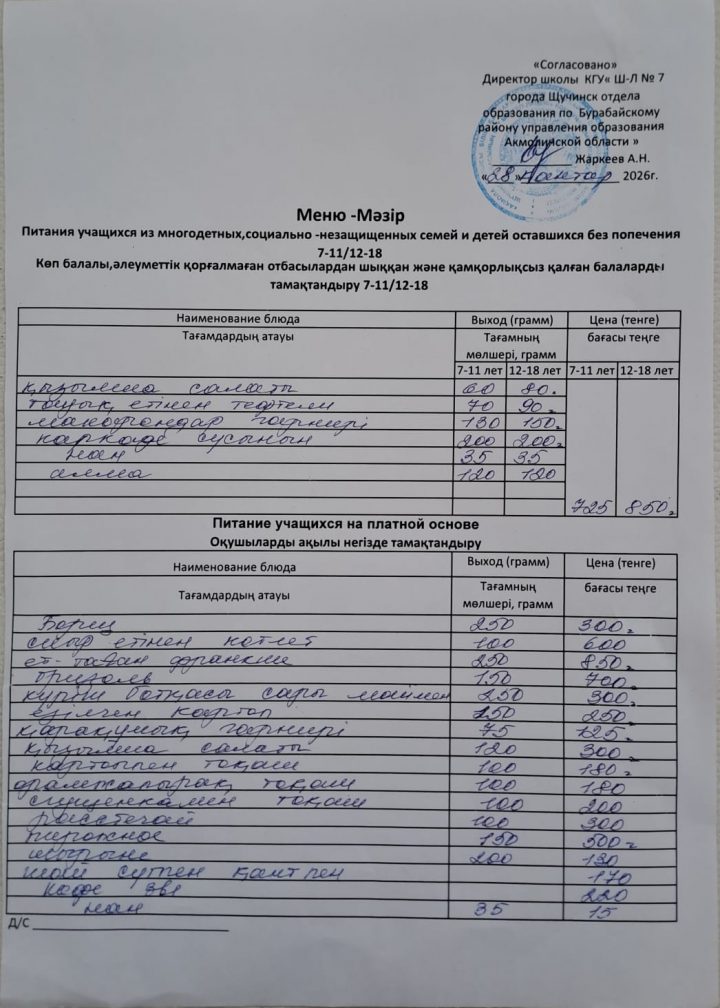 «Согласовано»
Директор школы КГУ« Ш-Л № 7
города Щучинск отдела
образования по Бурабайскому
району управления образования
Акмолинской области »
Жаркеев А.Н.
«28» Қаңтар 2026г.
Меню -Мәзір
Питания учащихся из многодетных,социально -незащищенных семей и детей оставшихся без попечения
7-11/12-18
Көп балалы,әлеуметтік қорғалмаған отбасылардан шыққан және қамқорлықсыз қалған балаларды
тамақтандыру 7-11/12-18
Наименование блюда Выход (грамм) Цена (тенге)
Тағамдардың атауы Тағамның мөлшері, грамм бағасы теңге
7-11 лет 12-18 лет 7-11 лет 12-18 лет
қызылша салаты 60 80.
тауық етінен тефтели 70 90.
макарондар гарнирі 130 150.
каркаде сусынын 200 200.
нан 35 35
алма 120 120
725 850.
Питание учащихся на платной основе
Оқушыларды ақылы негізде тамақтандыру
Наименование блюда Выход (грамм) Цена (тенге)
Тағамдардың атауы Тағамның мөлшері, грамм бағасы теңге
Борщ 250 300.
сиыр етінен котлет 100 600
ет- 250 850.
150 700.
күріш ботқасы сары маймен 250 300.
езілген картоп 150 250.
қарақұмық гарнирі 75 125.
қызылша салаты 120 300.
картоппен тоқаш 100 180.
орамжапырақ тоқаш 100 180
сгущенкамен тоқаш 100 200
100 300
пирожное 150 500.
шырын 200 130
шай сүтпен қантпен 170
кофе 3в1 220
нан 35 15
Д/С